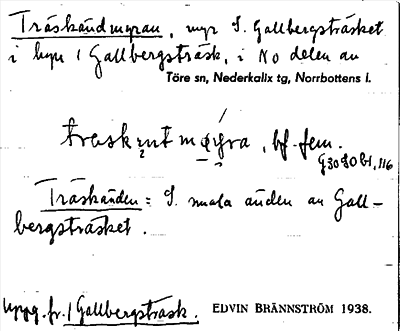 Träskändmyran, myr S. Gallbergsträsket
i byn / Gallbergsträsk, i NO delen av
Töre sn, Nederkalix tg, Norrbottens l.
bf. fem.
Träskänden = S. smala änden av Gall-
bergsträsket.
Uppg. fr. / Gallbergsträsk. EDVIN BRÄNNSTRÖM 1938.